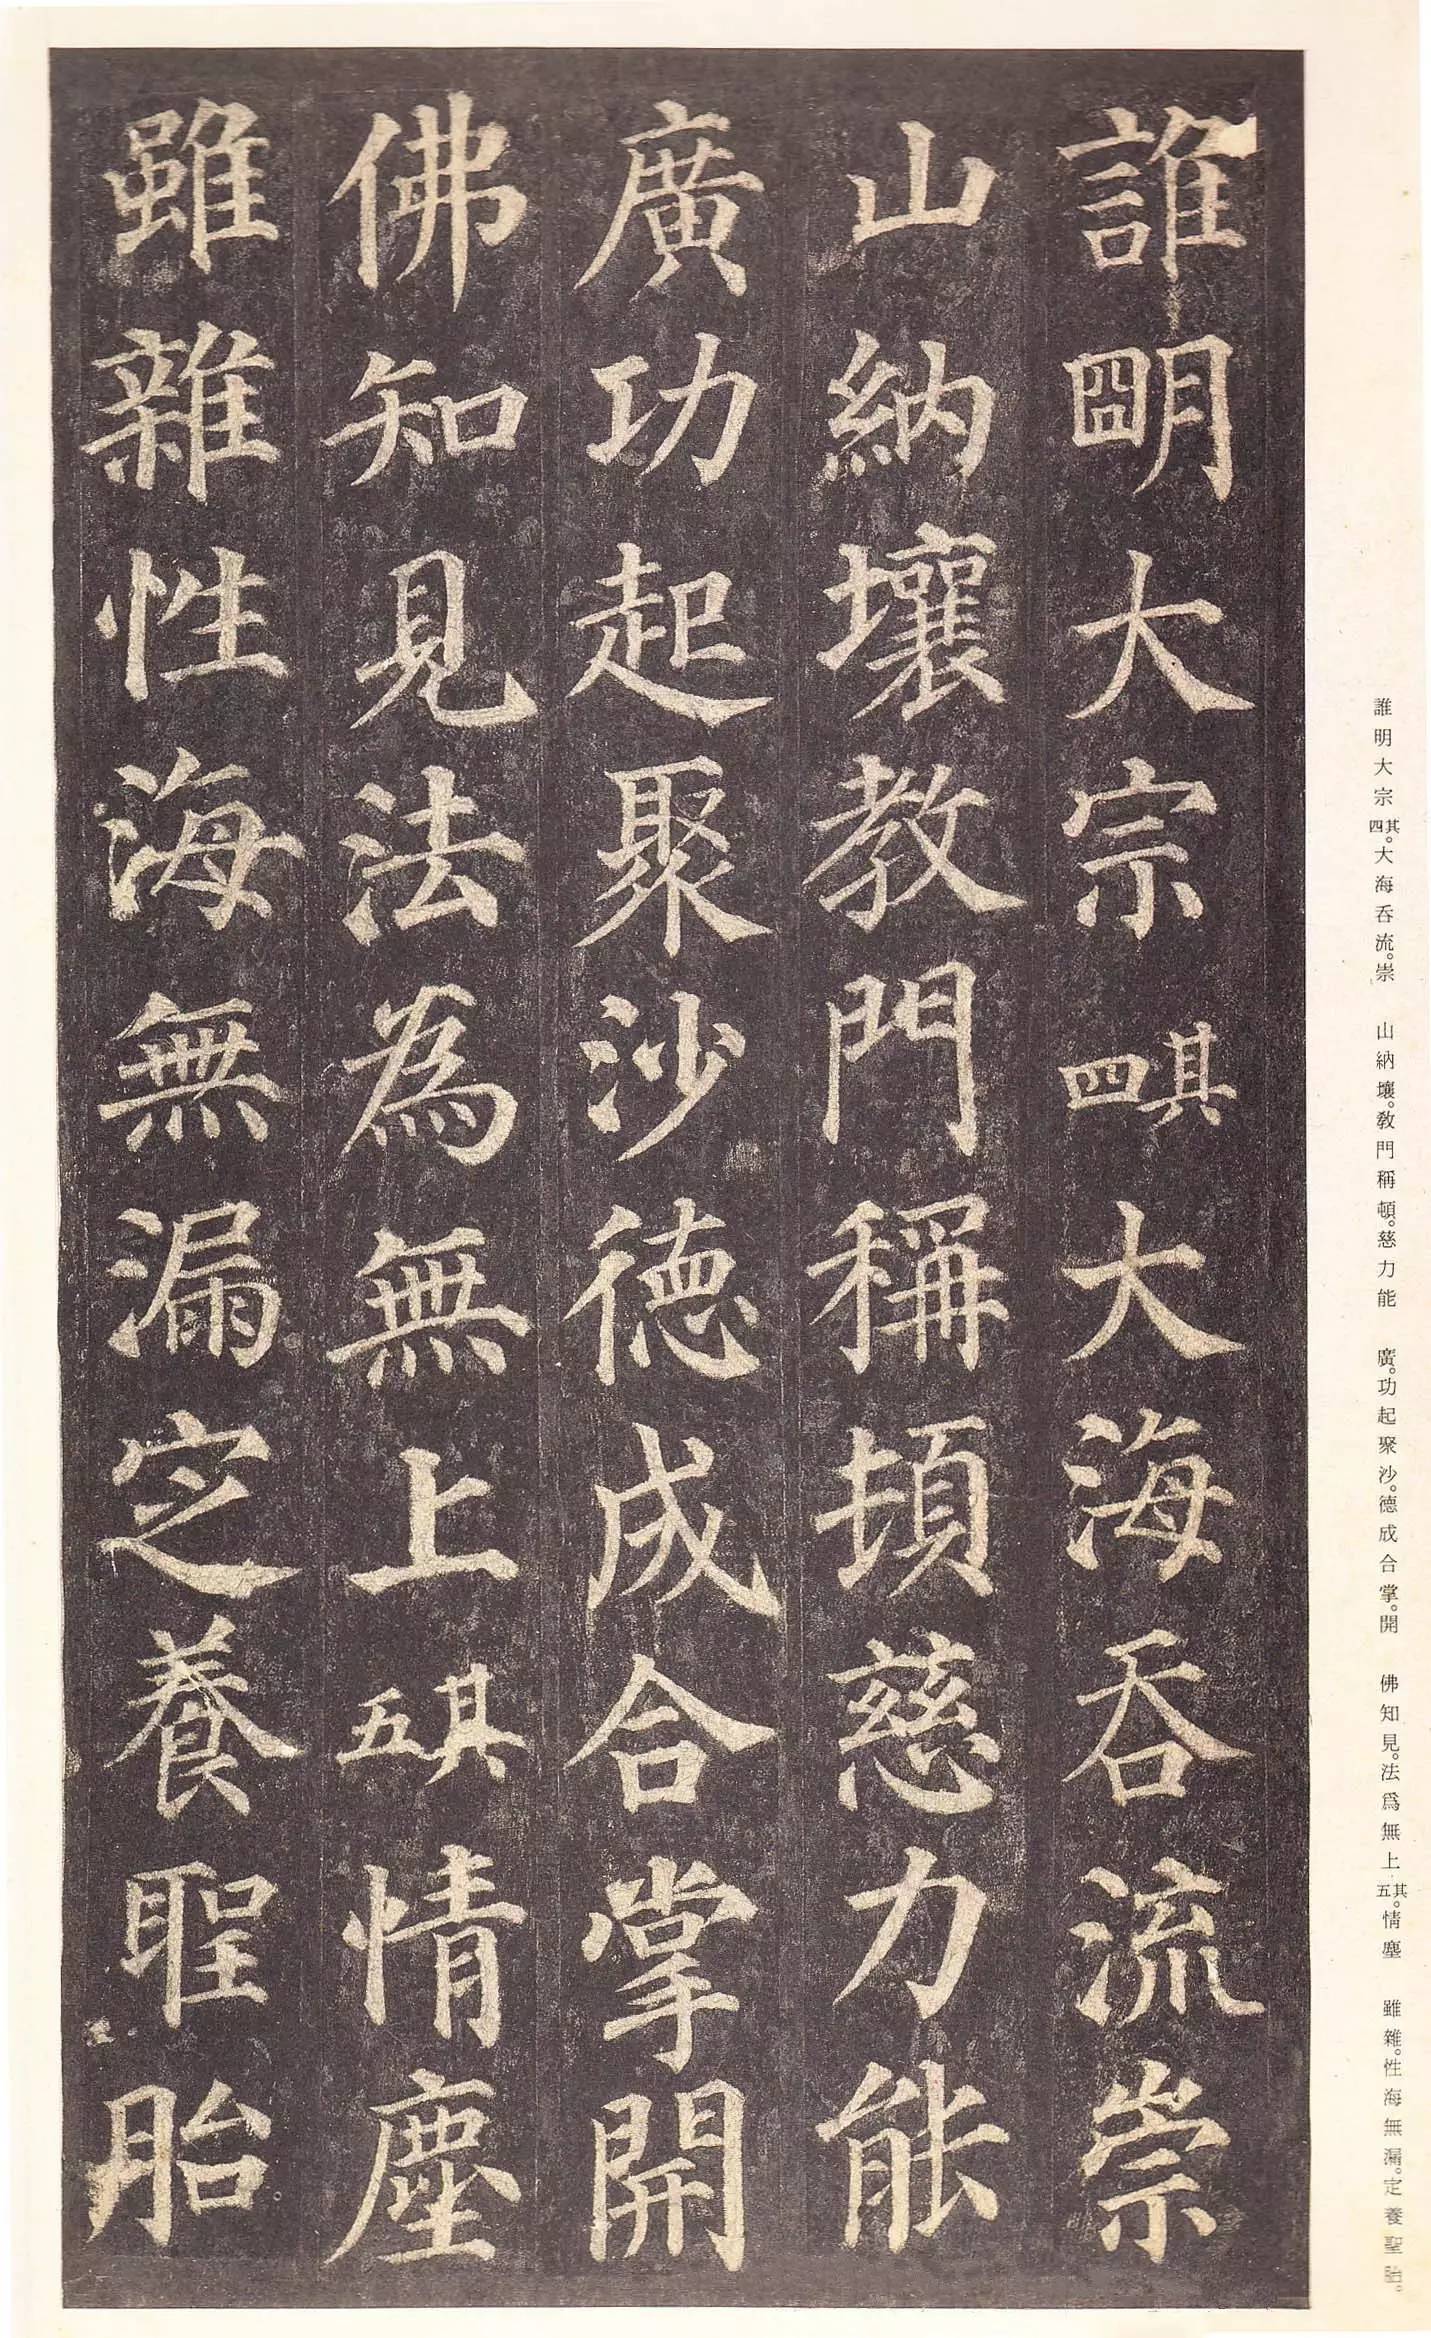 誰明大宗其四大海吞流崇
山納壤教門稱頓慈力能
廣功起聚沙德成合掌開
佛知見法為無上其五情塵
雖雜性海無漏定養聖胎
誰明大宗其四。大海吞流。崇　山納壤。教門稱頓。慈力能　廣。功起聚沙。德成合掌。開　佛知見。法爲無上其五。情塵　雖雜。性海無漏。定養聖胎。